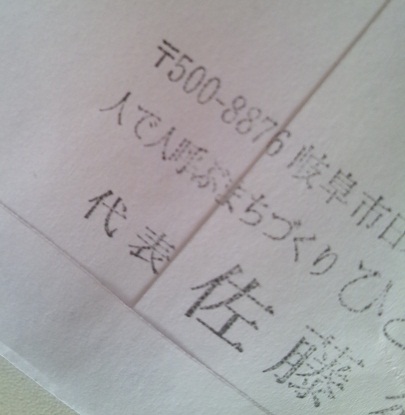 〒500-8876 岐阜市日
人で人呼ぶまちづくり ひと
代表 佐藤